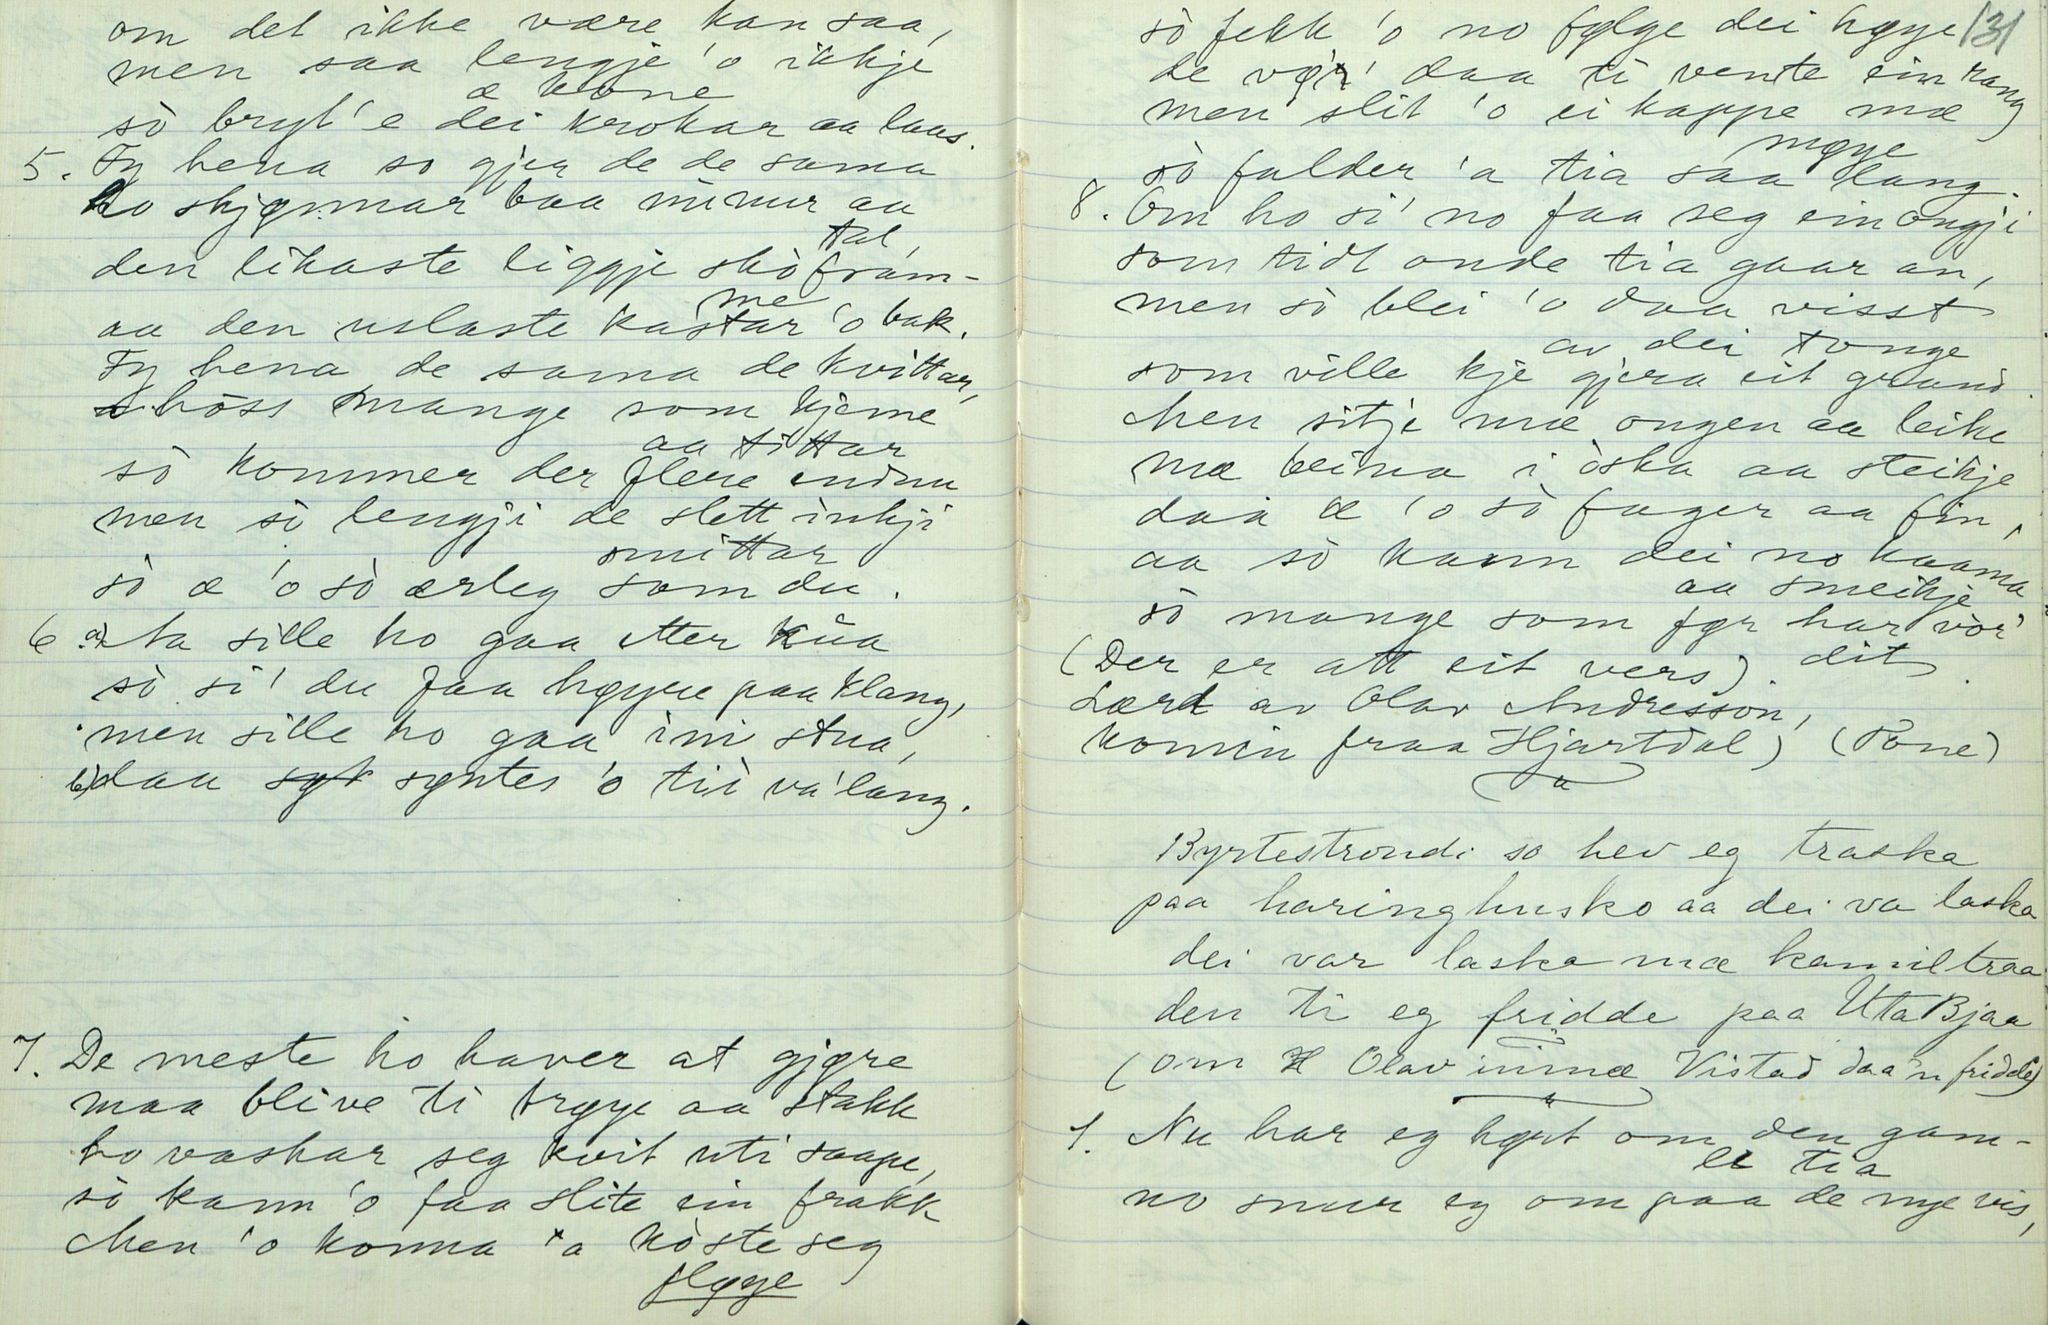 om det ikke være kan saa,
men saa lengje 'o ikkje
æ kone
sò bryt 'e dei krokar aa laas.
5. Ty hena so gjer de de sama
ho skjømar baa minur aa
tal,
den likaste liggje skò fram-
me
aa den uslaste kastar 'o bak.
Ty hena de sama de kvittar,
hòss mange som kjeme
aa tittar
sò kommer der flere endnu
men sò lengji de slett inkji
smittar
sò æ 'o sò ærleg som du.
6 a) Ta sille ho gaa etter kua
sò si' du faa høyre paa klang,
men sille ho gaa ini stua,
b) daa syntes 'o tii va' lang.
7. De meste ho haver at gjøre
maa blive ti trøye aa stakk
ho vaskar seg kvit uti saape,
sò kann 'o faa slite ein frakk
Men 'o konna 'a kòste seg
fløye
131
sò fekk 'o no følge dei høye
de vør' daa ti vente ein rang
men slit 'o ei kappe mæ
møye
sò falder 'a tia saa lang.
8. Om ho si' no faa seg ein ongji
som tidt onde tia gaar an,
men sò blei 'o daa visst
av dei tonge
som ville kje gjera eit grand.
Men sitje mæ ongen aa leike
mæ beina i òska aa steikje
daa æ 'o sò fager aa fin,
aa sò kann dei no kaama
aa smeikje
sò mange som før har vòr'
dit.
(Der er att eit vers)
Lært av Olav Andresson,
komin fraa Hjartdal) (Tone)
Byrtestrondi so hev eg traska
paa haringhusko aa dei va laska
dei var laska mæ kamiltraa
den ti eg fridde paa Uta Bjaa
(om Olav inimæ Vistad daa 'n fridde)
1. Nu har eg høyt om den gam-
le tia
no snur eg om paa de nye vis,